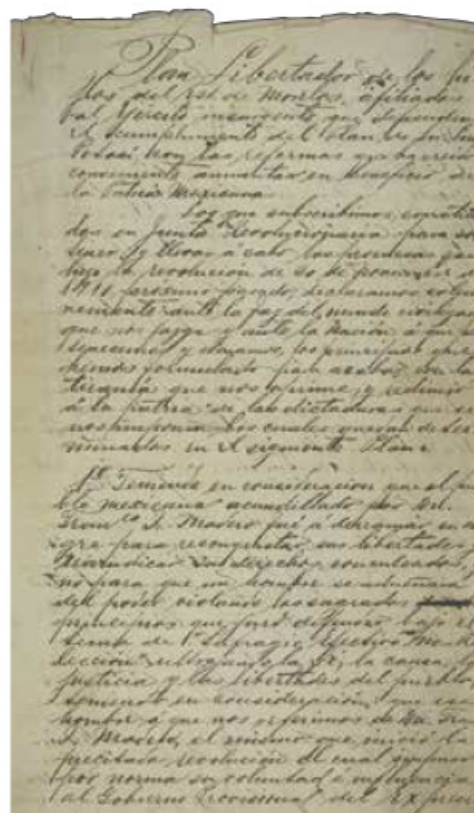 Plan Libertador de los hi
jos del Est. de Morelos, afiliados
al Ejército insurgente que defienden
el cumplimiento del Plan de San Luis
Potosí, con las reformas que ha creído
conveniente aumentar en beneficio de
la Patria Mexicana.
Los que subscribimos, constitui
dos en Junta Revolucionaria para sos
tener y llevar á cabo las promesas que
hizo la revolución de 20 de Noviembre de
1910, próximo pasado, declaramos solem
nemente ante la faz del mundo civilizado
que nos juzga y ante la Nación á que per
tenecemos y amamos, los principios que
hemos formulado para acabar con la
tiranía que nos oprime y redimir
á la patria de las dictaduras que se
nos imponen los cuales quedan deter
minados en el siguiente Plan.
1º Teniendo en consideración que el pue
blo mexicano acaudillado por Dn.
Franco. I. Madero fué á derramar su san
gre para reconquistar sus libertades y
reivindicar sus derechos conculcados, y
no para que un hombre se adueñara
del poder violando los sagrados
principios que juró defender bajo el
lema de "Sufragio Efectivo No Re
elección" ultrajando la fé, la causa, la
justicia y las libertades del pueblo;
teniendo en consideración que ese
hombre á que nos referimos es Dn. Fco.
I. Madero, el mismo que inició la
precitada revolución el cual impuso
por norma su voluntad é influencia
al Gobierno Provisional del Ex Presi